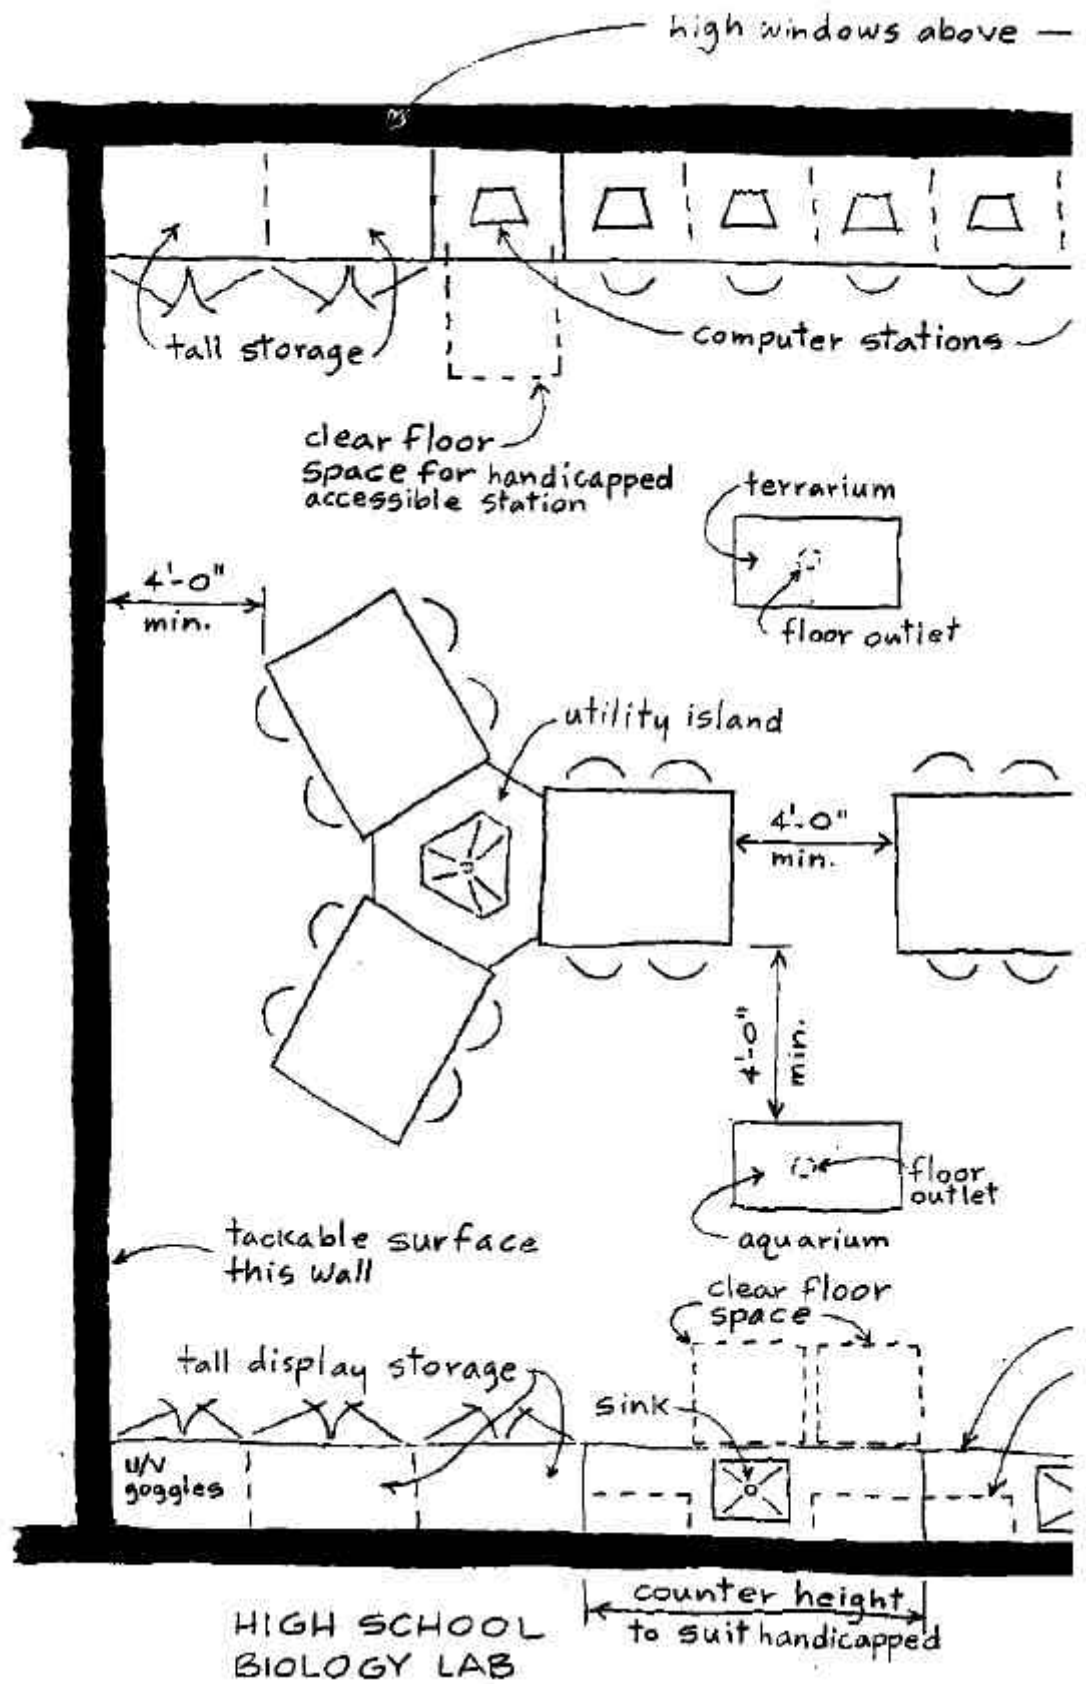 high windows above
tall storage
computer stations
clear floor
space for handicapped
accessible station
terrarium
floor outlet
4'-0"
min.
utility island
4'-0"
min.
4'-0"
min.
floor
outlet
aquarium
tackable surface
this wall
clear floor
space
tall display storage
sink
u/v
goggles
counter height
to suit handicapped
HIGH SCHOOL
BIOLOGY LAB